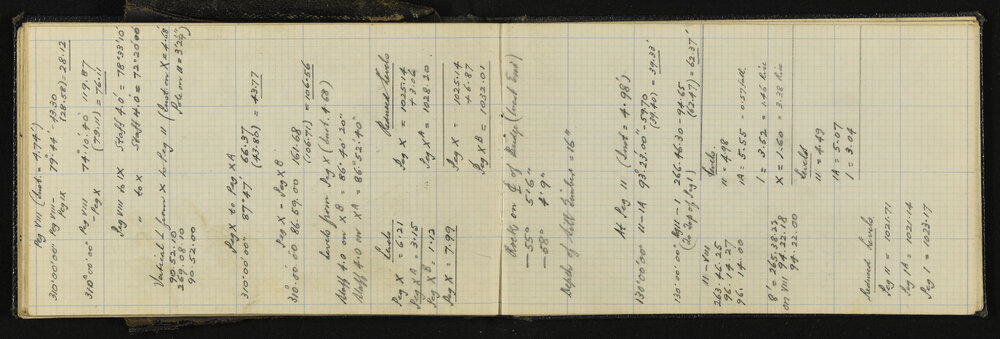 Peg VIII (Inst. = 4.74')
310°00'00" Peg VIII - Peg IX 79°44' - 43.30 (28.58) = 28.12
310°00'00" Peg VIII - Peg X 74°10'40" 119.87 (79.11) = 76.11
Peg VIII to IX Staff 4.0' = 78°33'10"
" to X Staff 4.0 = 72°20'00
Vertical L from X to Peg 11 (Inst on X = 4.68
90.52.10 Pole on 11 = 3'2½")
269.08.10
90.52.00
Peg X to Peg XA
310°00'00" 87°47' 66.37 (43.86) = 43.77
Peg X - Peg XB
310.00.00 86.59.00 161.68 (106.71) = 106.56
Levels from Peg X (Inst. 4.68)
Staff 4.0 on XB = 86°40'20"
Staff 4.0 on XA = 86°52'40"
Levels
Peg X = 6.21
Peg XA = 3.15
Peg XB = 1.12
Peg X = 7.99
Reduced Levels
Peg X = 1025.14
+3.06
Peg XA = 1028.20
Peg X = 1025.14
+6.87
Peg XB = 1032.01
Rocks on ₵ of Bridge (West End)
-55" 5'6"
-58" 4'9"
Depth of Sill timbers = 16"
At Peg 11 (Inst = 4.98')
130°00'00" 11-1A 93°23'00" - 59.70 (39.40) = 39.33'
130°00'00" Peg 11 - 1 266.46.30 - 94.65
(To Top of Peg 1) (62.47) = 62.37'
11 - VIII
263.46.25
96.14.27
96.14.00
8' = 265.38.22
on VIII = 94.22.28
94.22.00
Levels
11 = 4.98
1A = 5.55 = 0.57 fall.
1 = 3.52 = 1.46 Rise
X = 1.60 = 3.38 Rise
Levels
11 = 4.49
1A = 5.07
1 = 3.04
Reduced Levels
Peg 11 = 1021.71
Peg 1A = 1021.14
Peg 1 = 1023.17